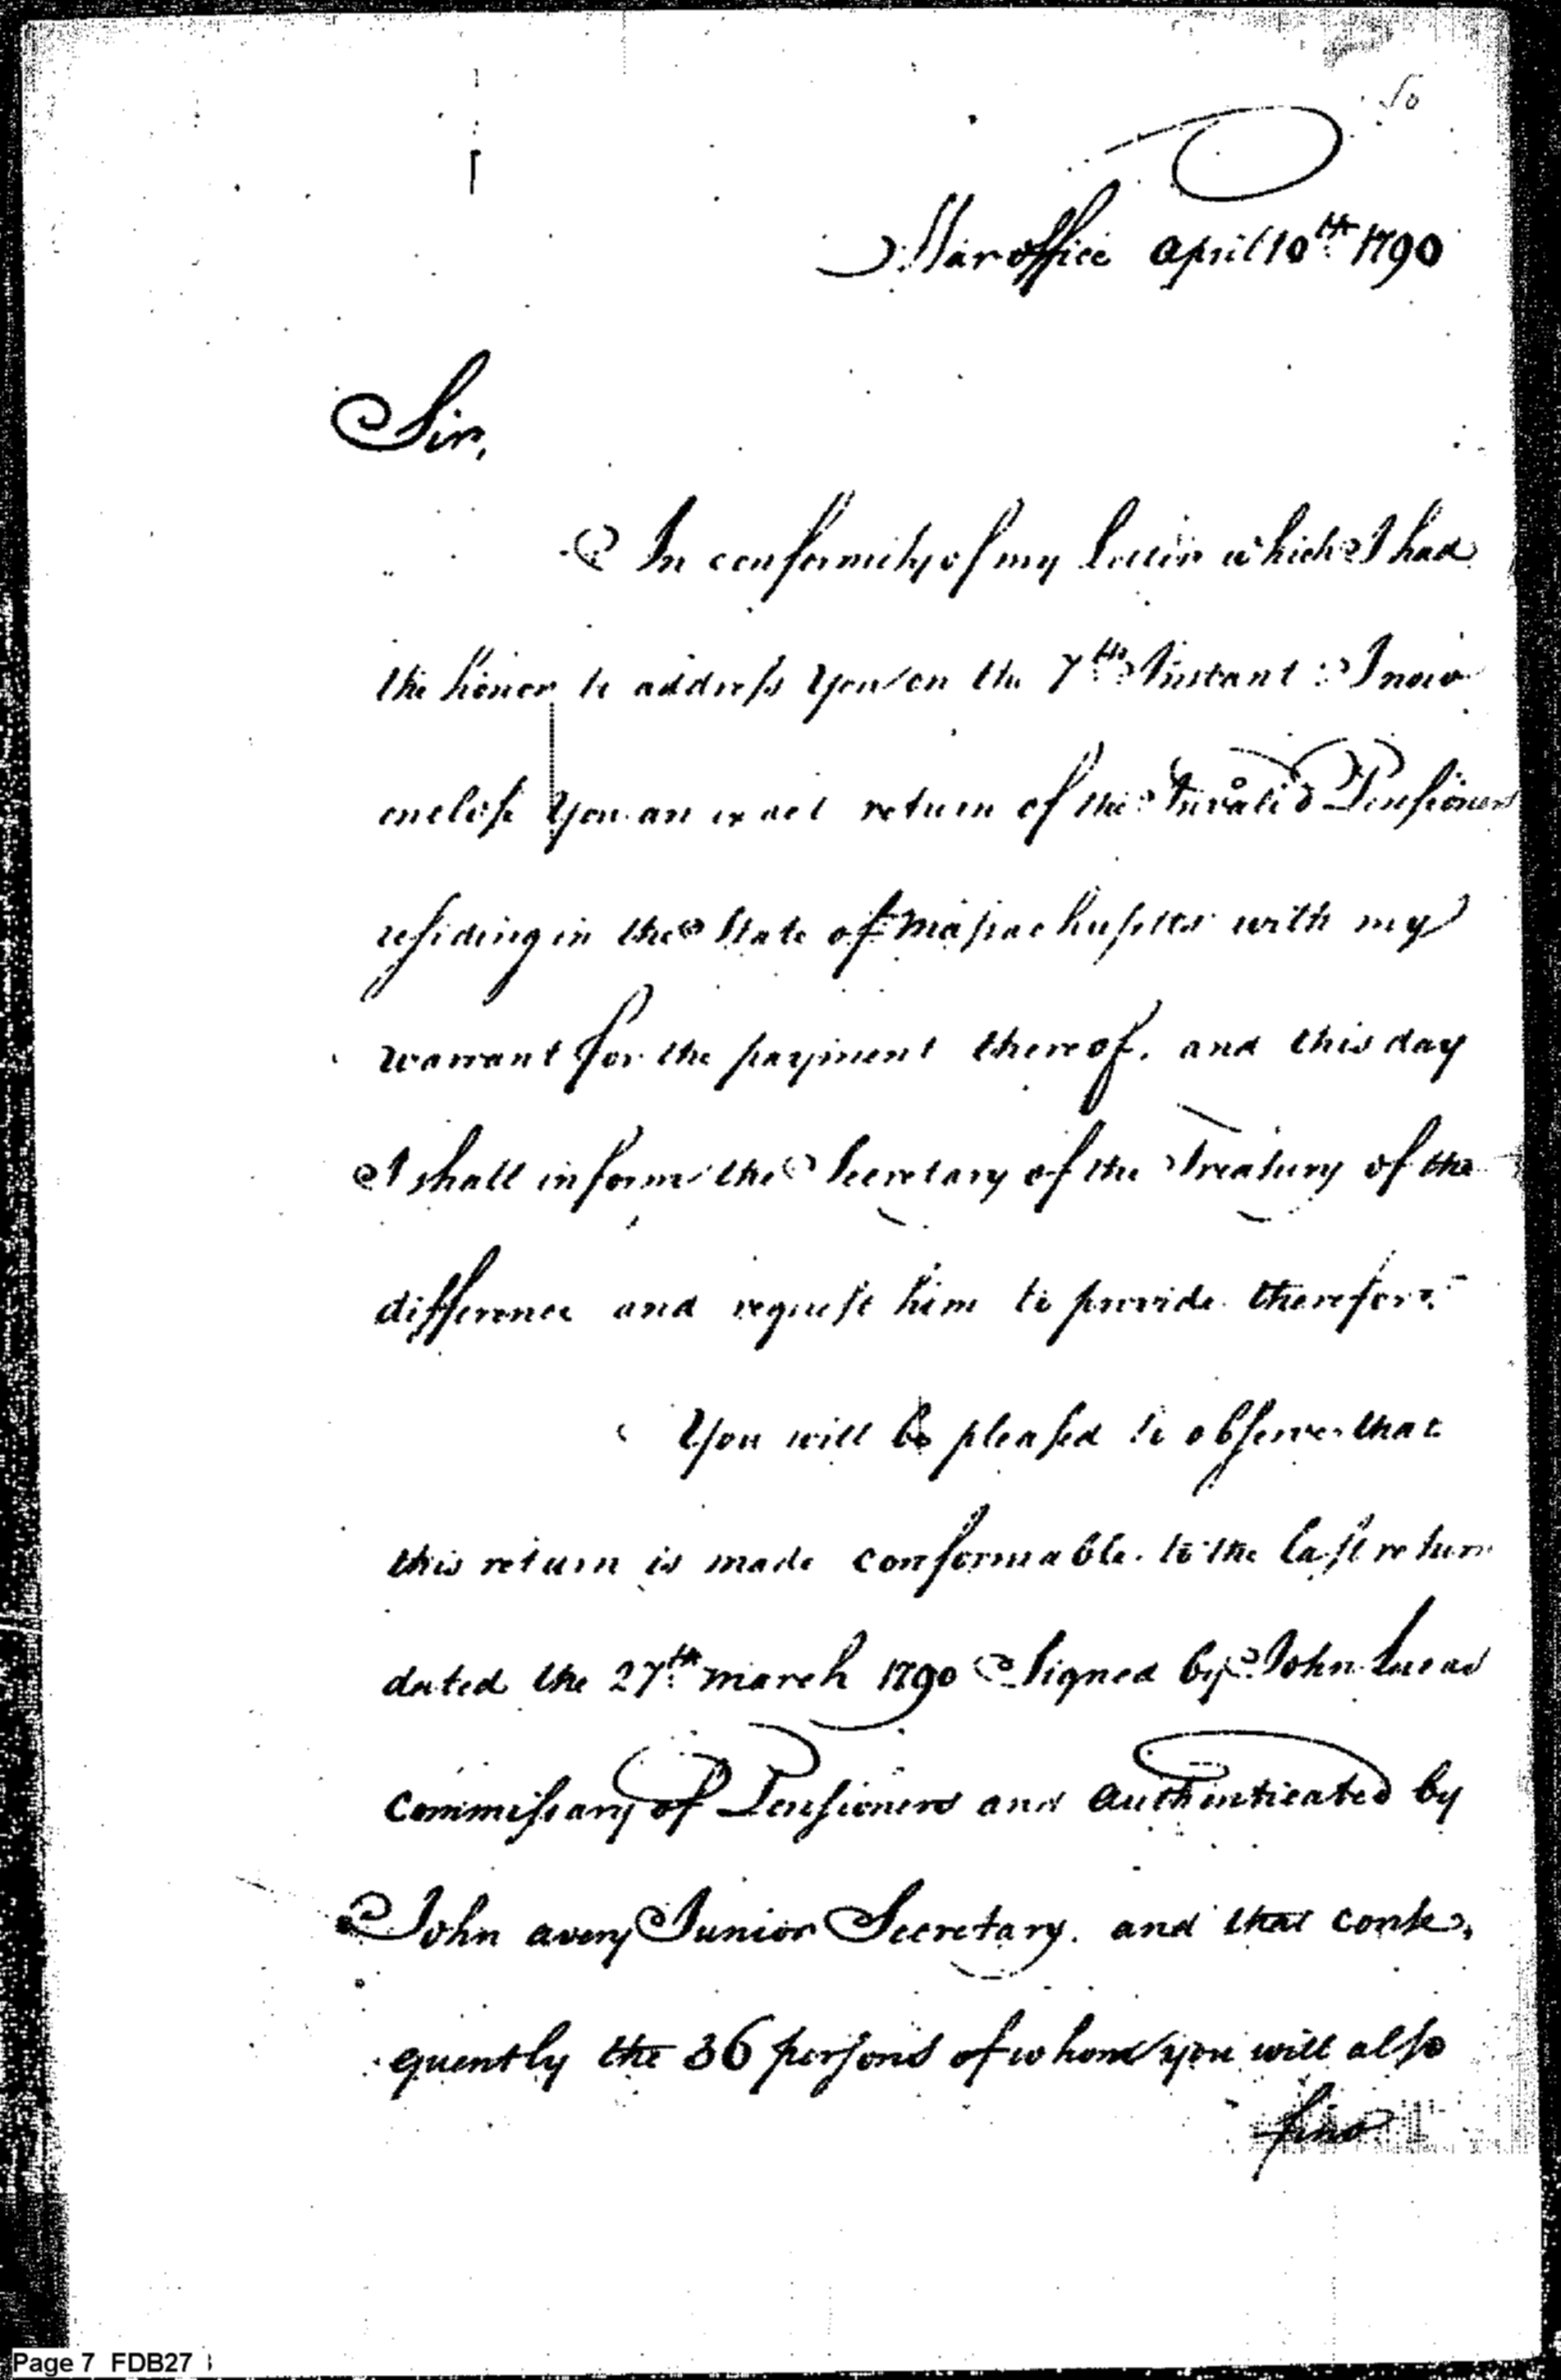 50
War office April 10th 1790
Sir,
In conformity of my Letter which I had
the honor to address you on the 7th Instant I now
enclose you an exact return of the Invalid Pensioners
residing in the State of Massachusetts with my
warrant for the payment thereof. and this day
I shall inform the Secretary of the Treasury of the
difference and request him to provide therefor.
You will be pleased to observe that
this return is made conformable to the last return
dated the 27th march 1790 Signed by John Lucas
Commissary of Pensioners and Authenticated by
John avery Junior Secretary. and that conse,
quently the 36 persons of whom you will also
find
Page 7 FDB27